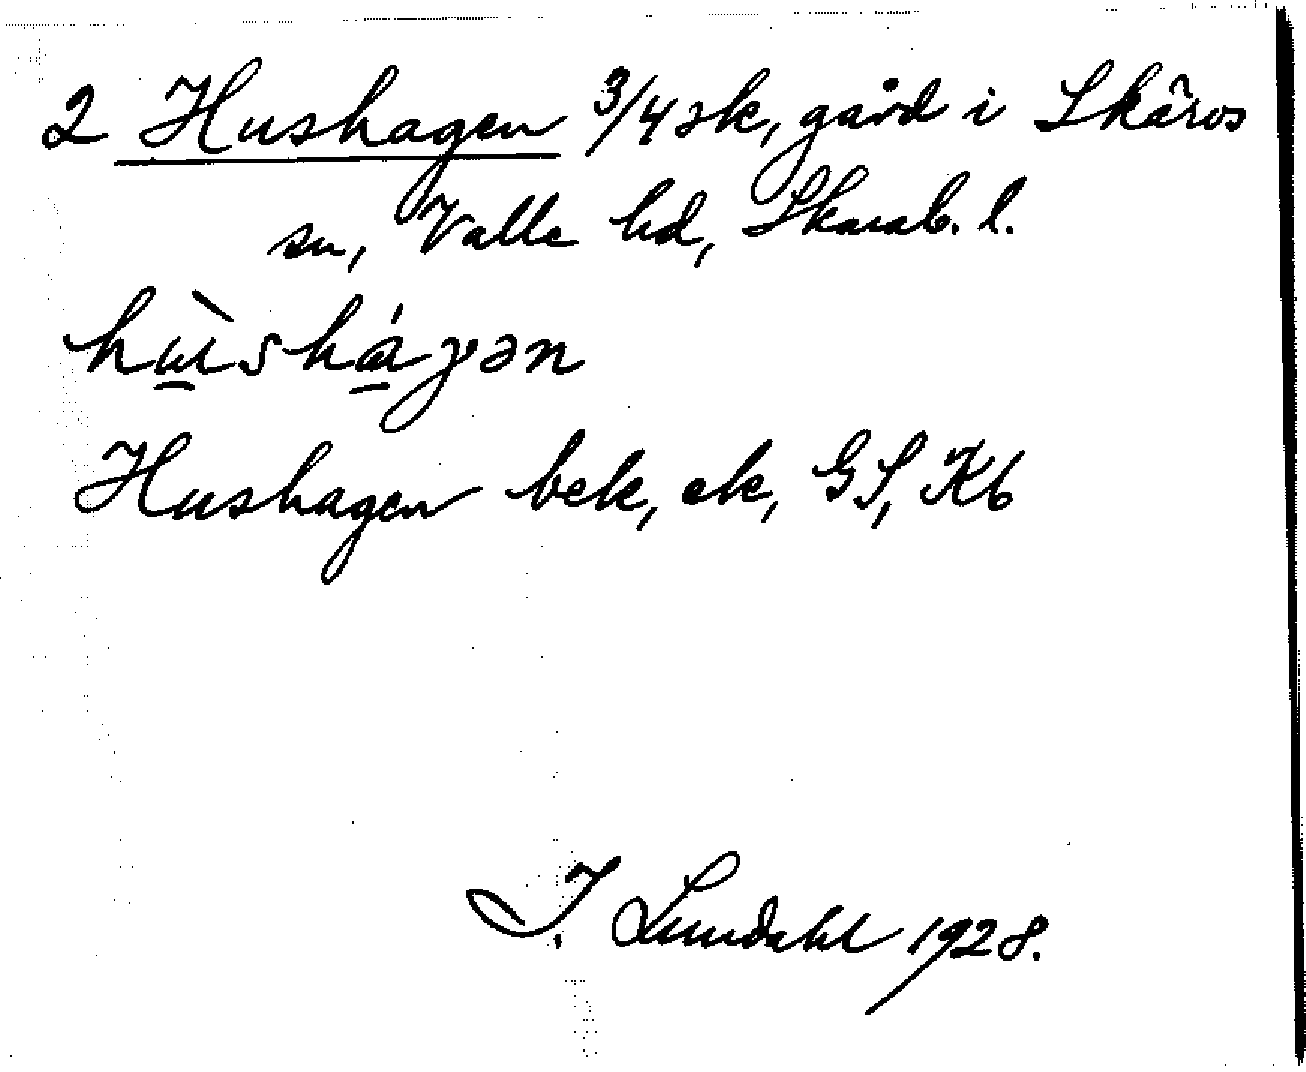 2 Hushagen 3/4 sk, gård i Skärvs
sn, Valle hd, Skarab. l.
hùshágən
Hushagen bek, ek, GS, Kb
I. Lundahl 1928.